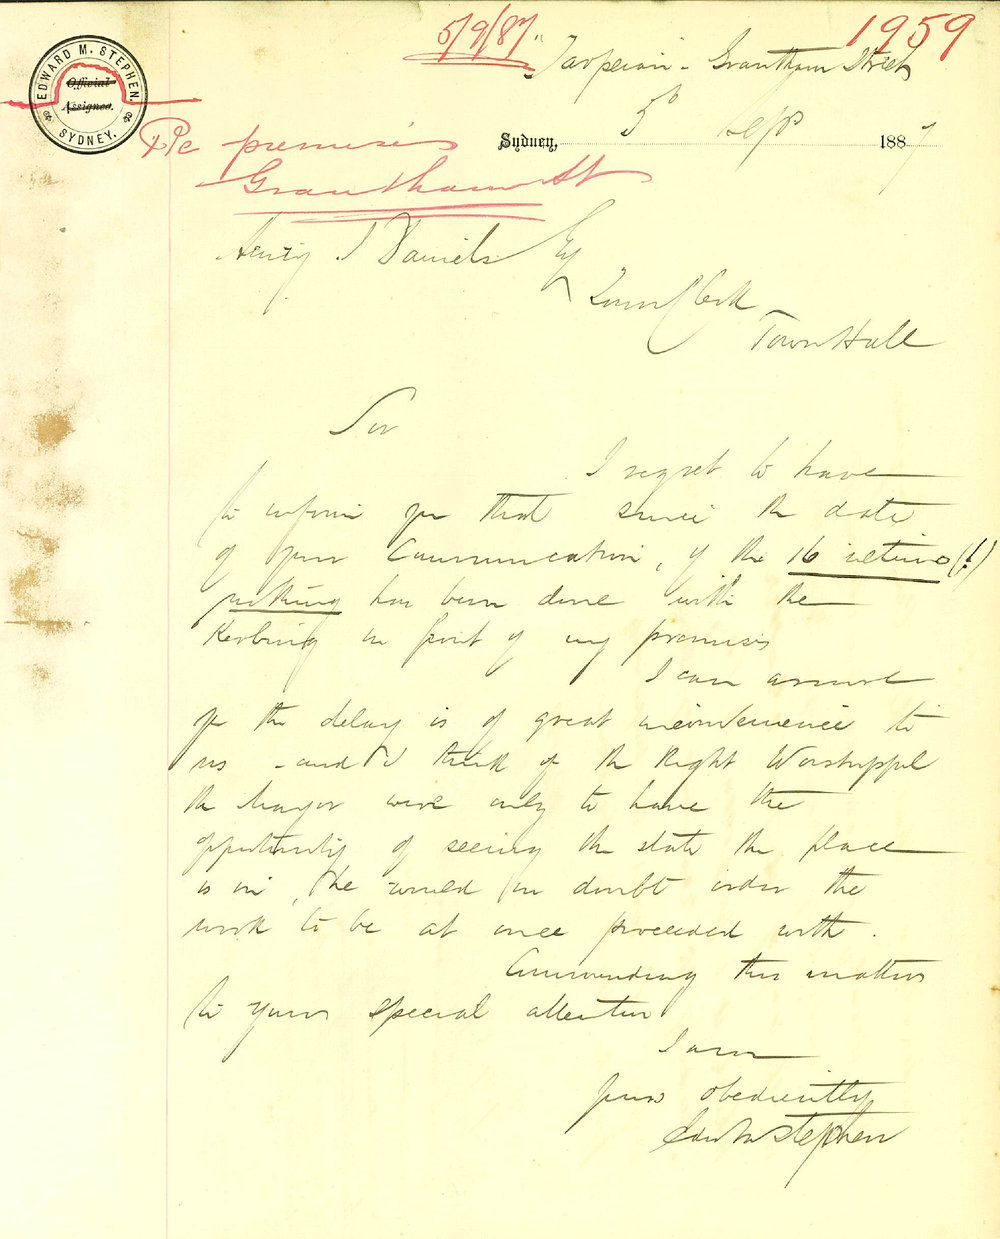 5/9/87
1959
"Tarpeian - Grantham Street
EDWARD M. STEPHEN.
Official
Assignee.
SYDNEY.
Sydney, 5th Sep 1887
Re premises
Grantham St
Henry J Daniels Esq
Town Clerk
Town Hall
Sir
I regret to have
to inform you that since the date
of your Communication, of the 16 ultimo (!)
nothing has been done with the
Kerbing in front of my premises
I can assure
you the delay is of great inconvenience to
us - and I think if the Right Worshipful
the Mayor were only to have the
opportunity of seeing the state the place
is in, he would no doubt order the
work to be at once proceeded with.
Commending this matter
to your special attention
I am
yours obediently
Edw M Stephen